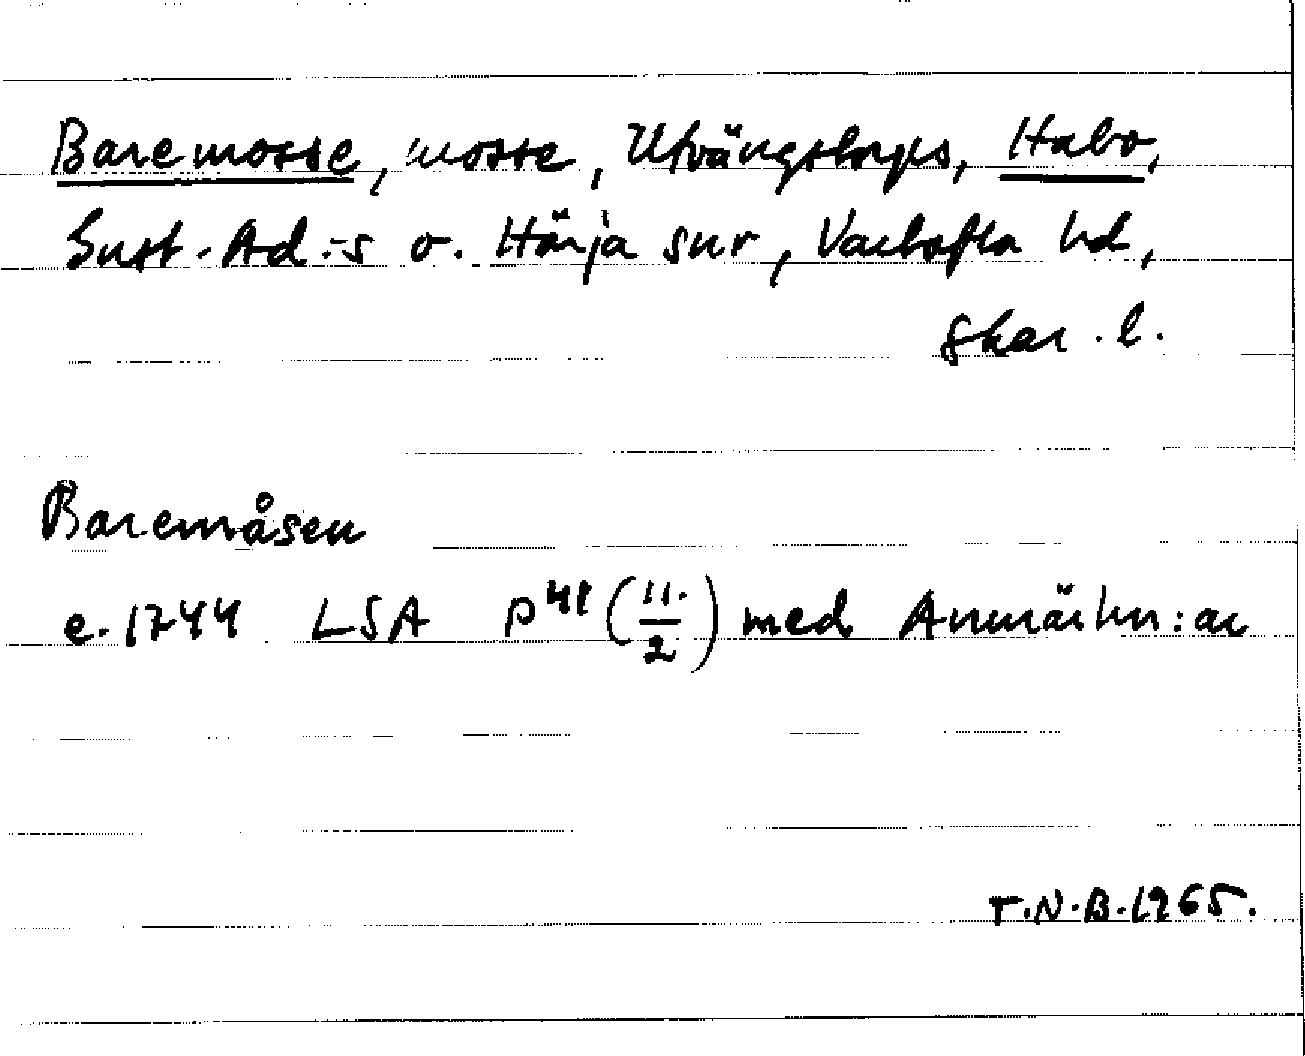 Baremosse, mosse, Utvängstorps, Habo,
Gust.-Ad.:s o. Härja snr, Vartofta hd,
Skar. l.
Baremåsen
e. 1744 LSA P 41 (11./2) med Anmärkn:ar
T.N.B. 1965.